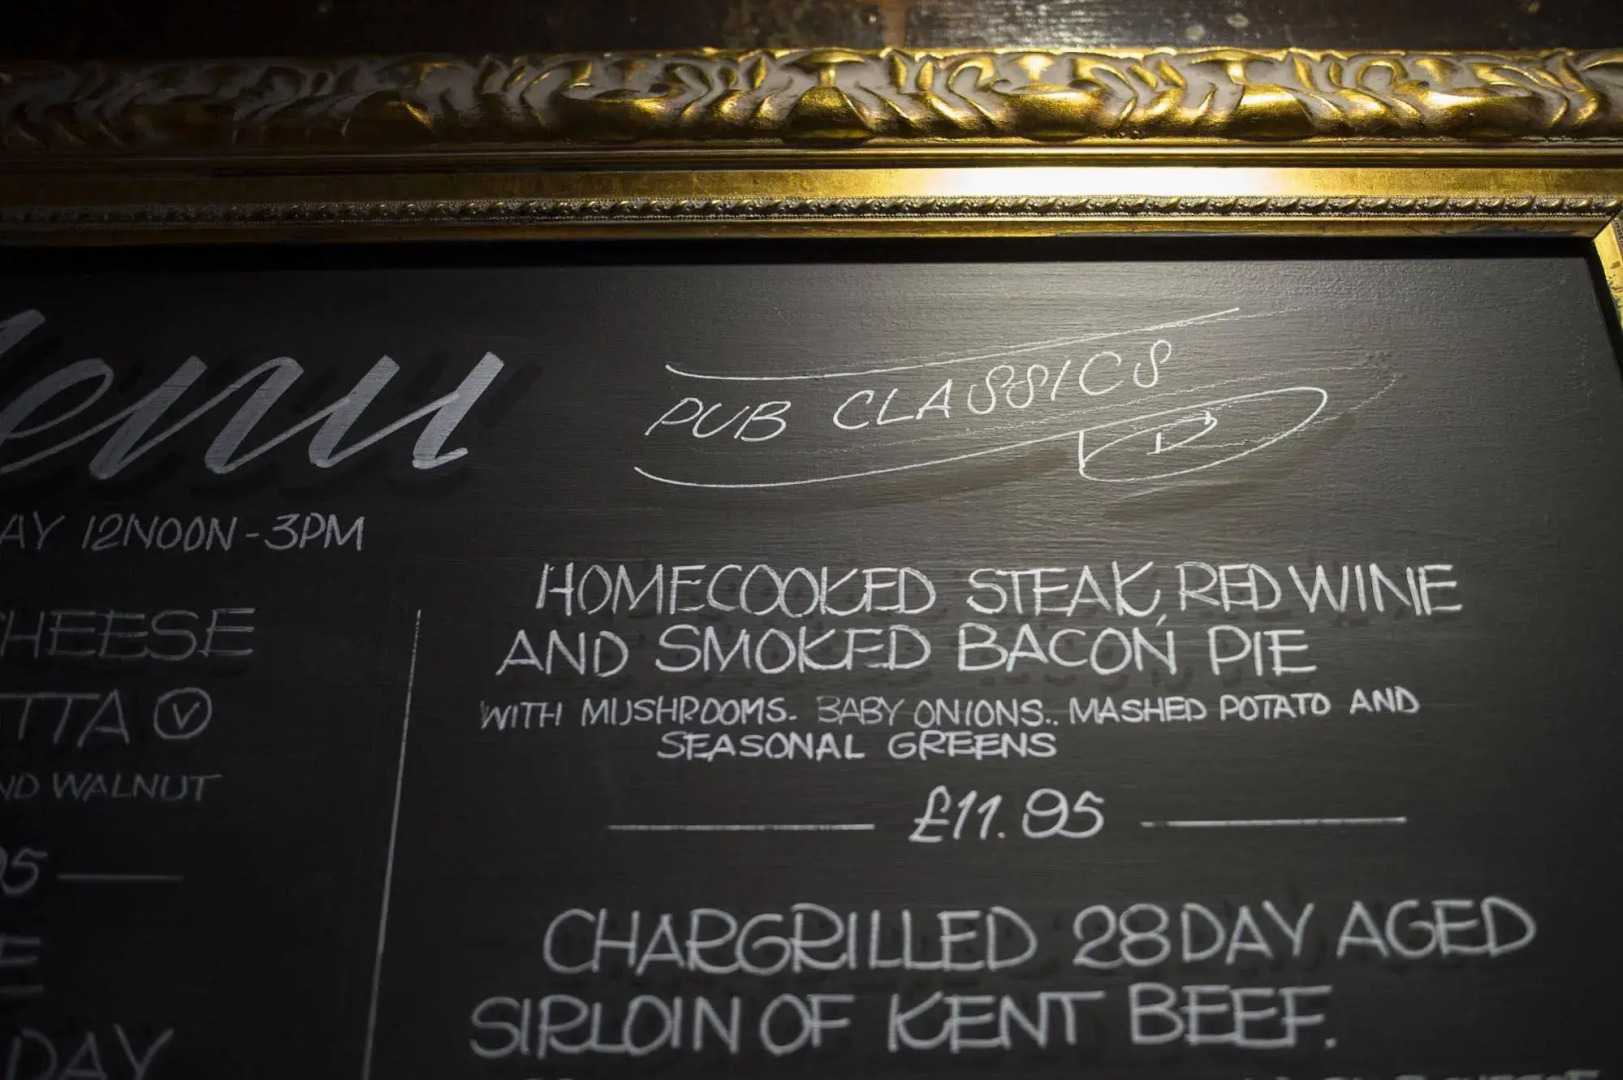 PUB CLASSICS
AY 12NOON - 3PM
HEESE
TTA V
ND WALNUT
95
DAY
HOMECOOKED STEAK, RED WINE
AND SMOKED BACON PIE
WITH MUSHROOMS. BABY ONIONS.. MASHED POTATO AND
SEASONAL GREENS
£11.95
CHARGRILLED 28 DAY AGED
SIRLOIN OF KENT BEEF.